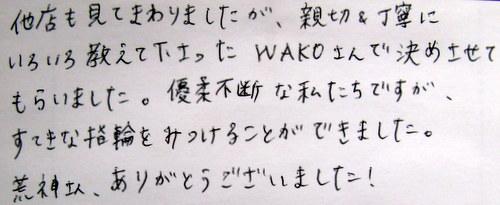 他店も見てまわりましたが、親切&丁寧に
いろいろ教えて下さった WAKOさんで決めさせて
もらいました。優柔不断な私たちですが、
すてきな指輪をみつけることができました。
荒神さん、ありがとうございました！